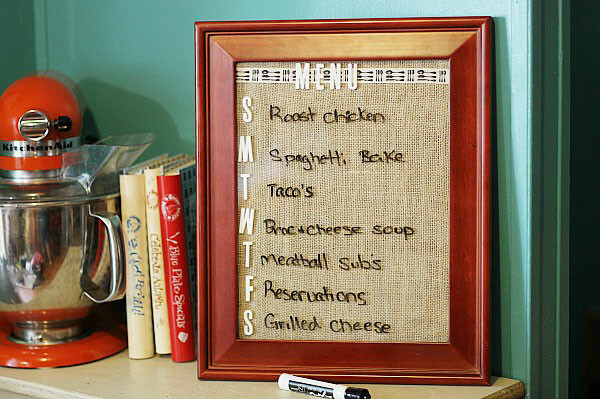 MENU
S Roast chicken
M Spaghetti Bake
T Taco's
W Broc & cheese soup
T meatball subs
F Reservations
S Grilled cheese
KitchenAid
Celebrate Autumn
Blue Plate Specials